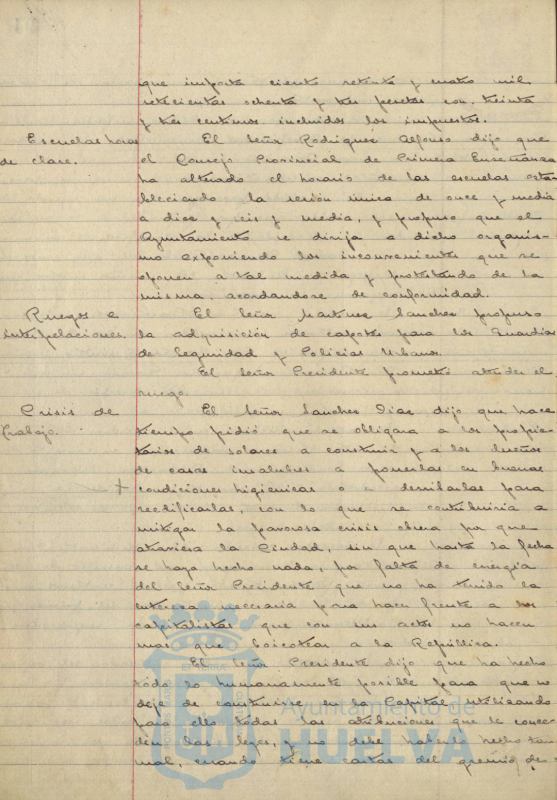 que importa ciento setenta y cuatro mil
setecientas ochenta y tres pesetas con treinta
y tres centimos incluidos los impuestos.
Escuelas horas
de clase.
El Señor Rodriguez Alfonso dijo que
el Consejo Provincial de Primera Enseñanza
ha alterado el horario de las escuelas esta-
bleciendo la sesión única de once y media
a diez y seis y media, y propuso que el
Ayuntamiento se dirija a dicho organis-
mo exponiendo los inconvenientes que se
oponen a tal medida y protestando de la
misma, acordandose de conformidad.
Ruegos e
interpelaciones.
El Señor Martinez Sanchez propuso
la adquisición de capotes para los Guardias
de Seguridad y Policias Urbanos.
El Señor Presidente prometió atender el
ruego.
Crisis de
trabajo.
El Señor Sanchez Diaz dijo que hace
tiempo pidió que se obligara a los propie-
tarios de solares a construir y a los dueños
de casas insalubres a ponerlas en buenas
+ condiciones higienicas o a derribarlas para
reedificarlas, con lo que se contribuiria a
mitigar la pavorosa crisis obrera por que
atraviesa la Ciudad, sin que hasta la fecha
se haya hecho nada, por falta de energia
del Señor Presidente que no ha tenido la
entereza necesaria para hacer frente a los
capitalistas que con sus actos no hacen
mas que boicotear a la República.
El Señor Presidente dijo que ha hecho
todo lo humanamente posible para que no
deje de construirse en la Capital utilizando
para ello todas las atribuciones que le conce-
den las leyes, y no debe haberlo hecho tan
mal, cuando tiene cartas del gremio de
Ayuntamiento de
HUELVA